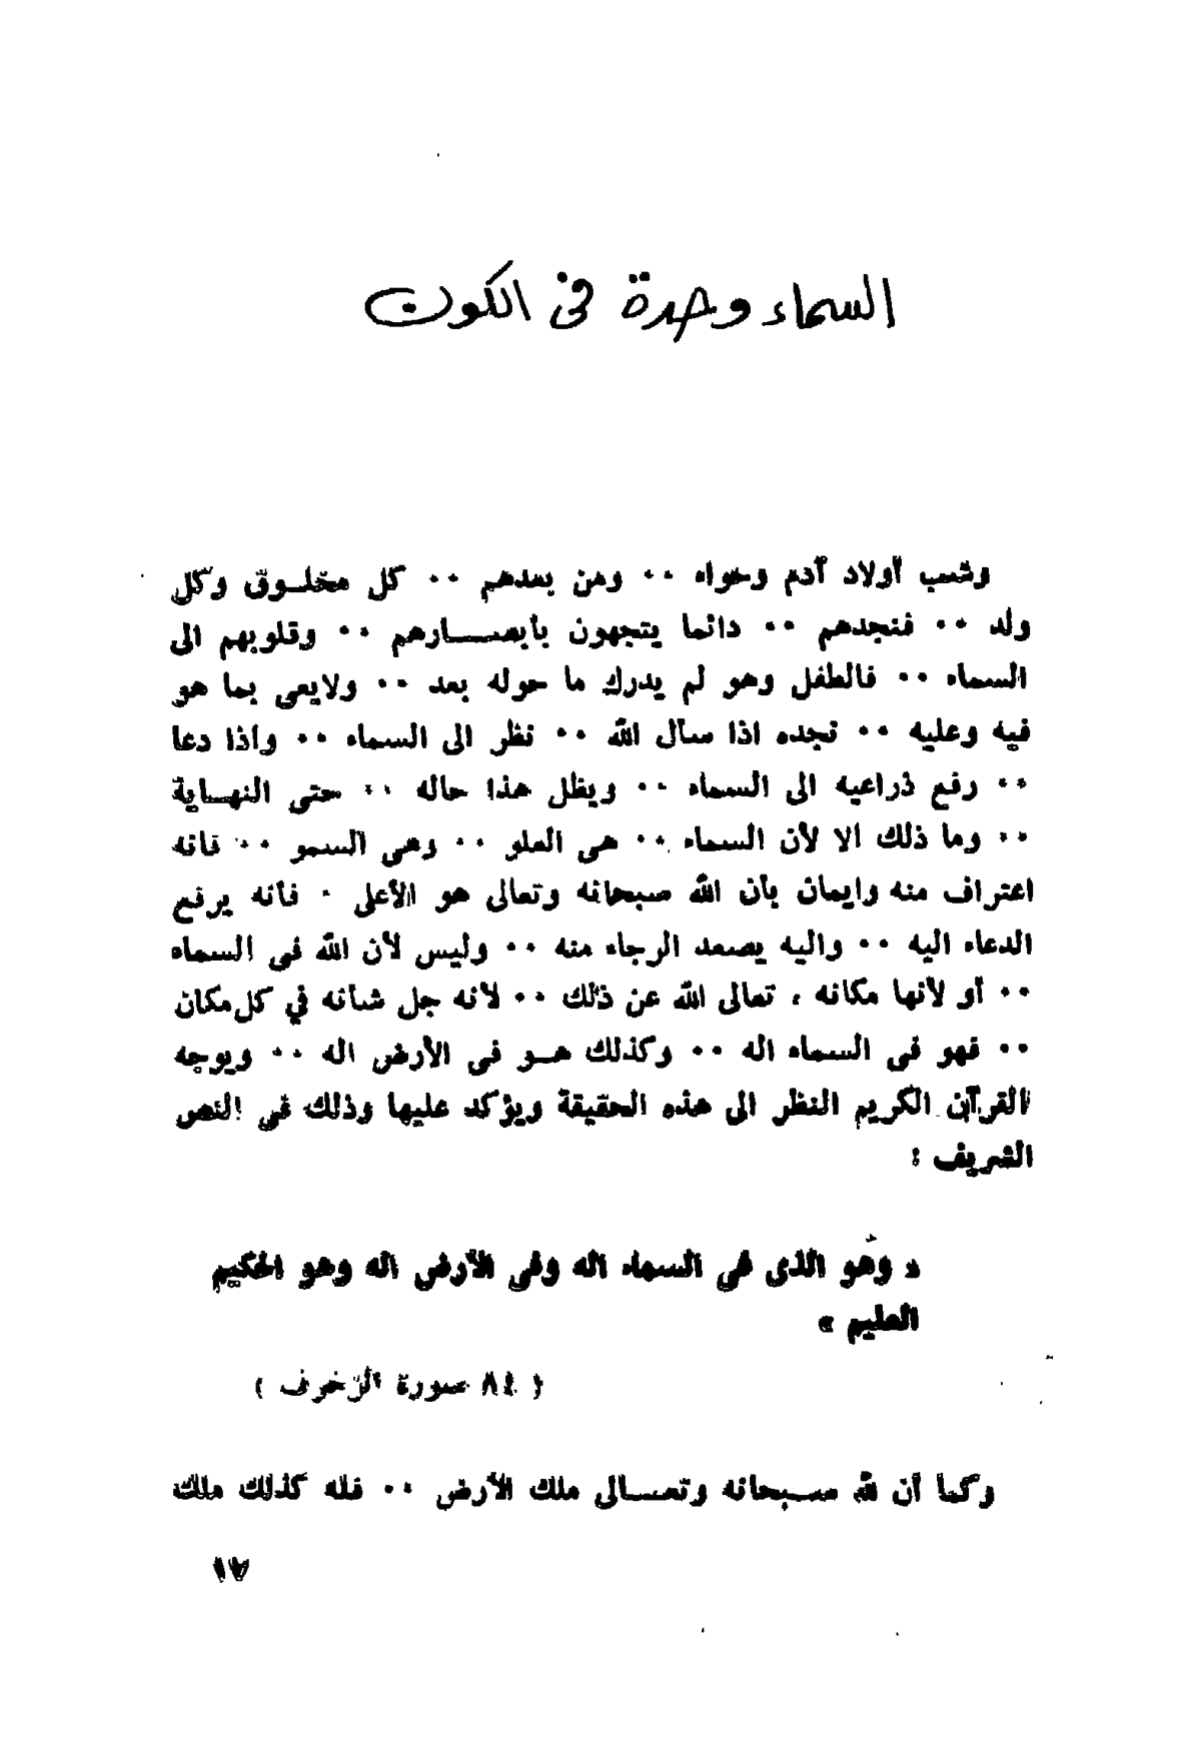 السماء وحدة فى الكون
وشب أولاد آدم وحواء ٠٠ ومن بعدهم ٠٠ كل مخلـوق وكل
ولد ٠٠ فنجدهم ٠٠ دائما يتجهون بأبصـــارهم ٠٠ وقلوبهم الى
السماء ٠٠ فالطفل وهو لم يدرك ما حوله بعد ٠٠ ولايعى بما هو
فيه وعليه ٠٠ تجده اذا سأل الله ٠٠ نظر الى السماء ٠٠ واذا دعا
٠٠ رفع ذراعيه الى السماء ٠٠ ويظل هذا حاله ٠٠ حتى النهـاية
٠٠ وما ذلك الا لأن السماء ٠٠ هى العلو ٠٠ وهى السمو ٠٠ فانه
اعتراف منه وايمان بأن الله سبحانه وتعالى هو الأعلى ٠ فأنه يرفع
الدعاء اليه ٠٠ واليه يصعد الرجاء منه ٠٠ وليس لأن الله فى السماء
٠٠ أو لأنها مكانه ، تعالى الله عن ذلك ٠٠ لأنه جل شأنه في كل مكان
٠٠ فهو فى السماء اله ٠٠ وكذلك هـو فى الأرض اله ٠٠ ويوجه
القرآن الكريم النظر الى هذه الحقيقة ويؤكد عليها وذلك في النص
الشريف :
« وهو الذى في السماء اله وفي الأرض اله وهو الحكيم
العليم »
( ٨٤ سورة الزخرف )
وكما أن لله سـبحانه وتعـالى ملك الأرض ٠٠ فله كذلك ملك
١٧